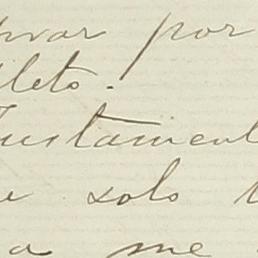 por
leto.
Justament
e solo
a me